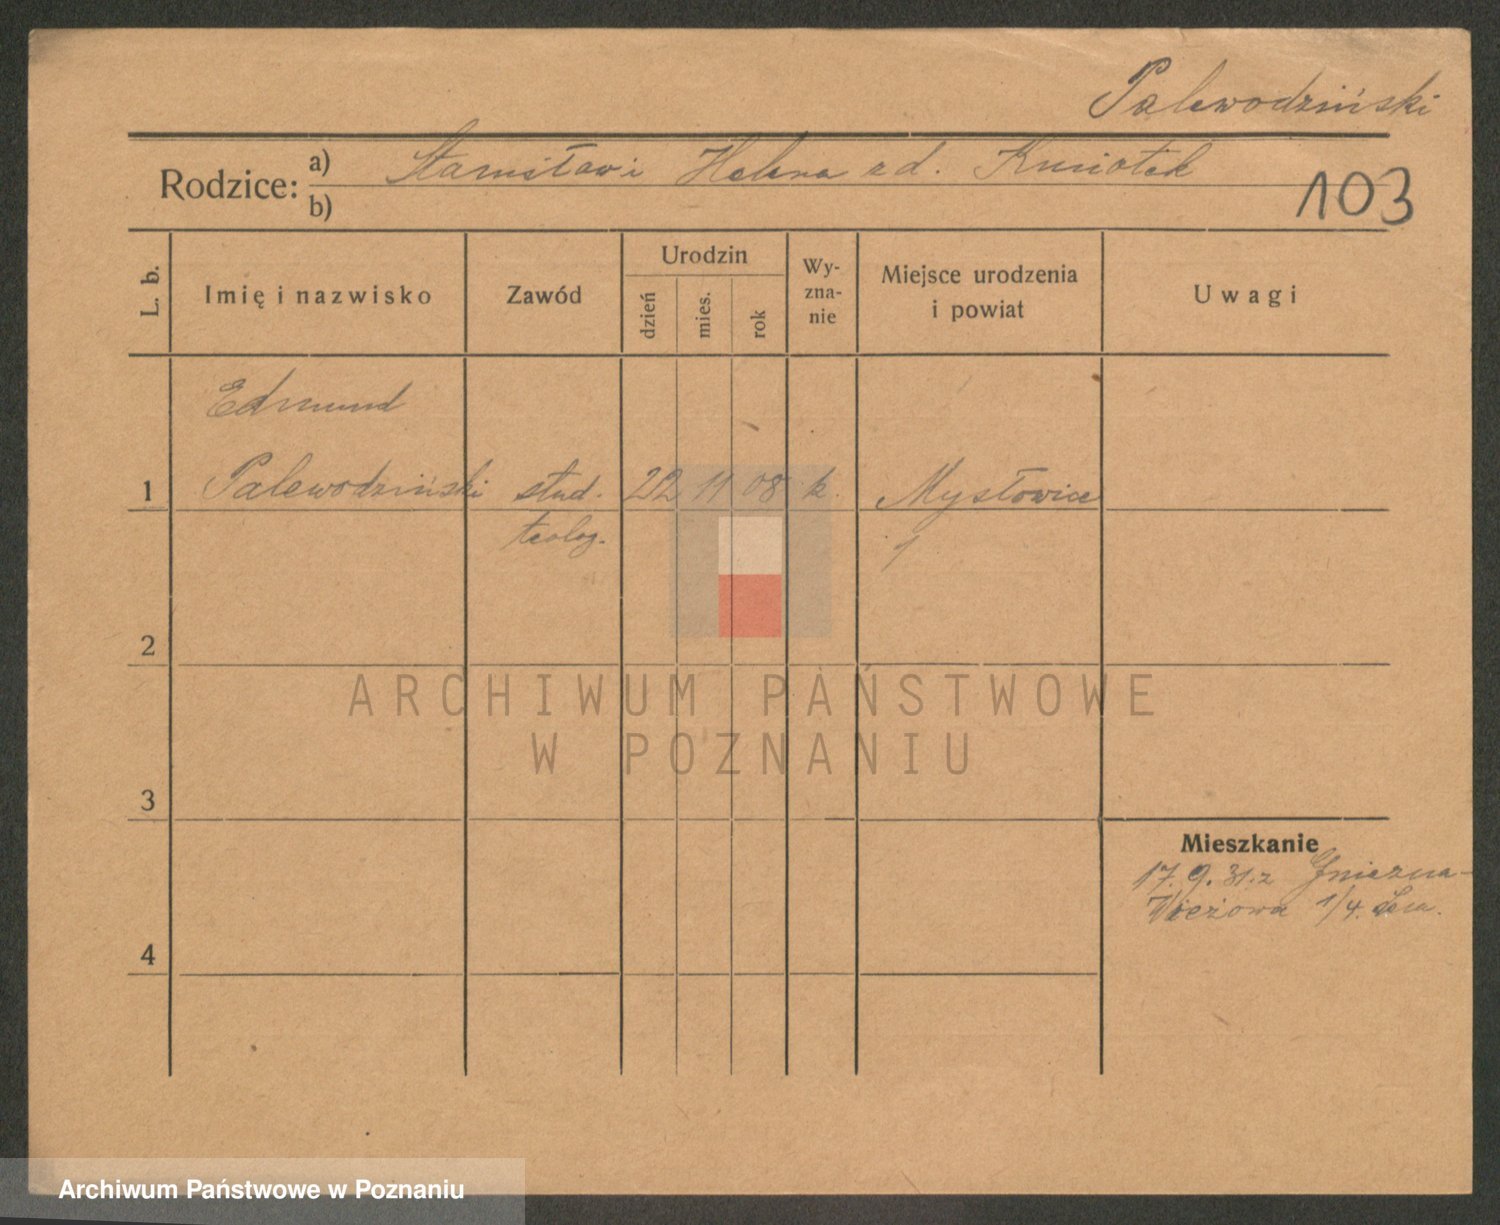 Palewodziński
Rodzice: a) Stanisław i Helena zd. Kusiołek
b)
103
L. b.
Imię i nazwisko
Zawód
Urodzin
dzień
mies.
rok
Wy-
zna-
nie
Miejsce urodzenia
i powiat
Uwagi
Edmund
1 Palewodziński stud. 22 11 08 k. Mysłowice
teolog.
2
3
4
Mieszkanie
17.9.31. z Gniezna-
Wieżowa 1/4. Sem.
ARCHIWUM PAŃSTWOWE
W POZNANIU
Archiwum Państwowe w Poznaniu